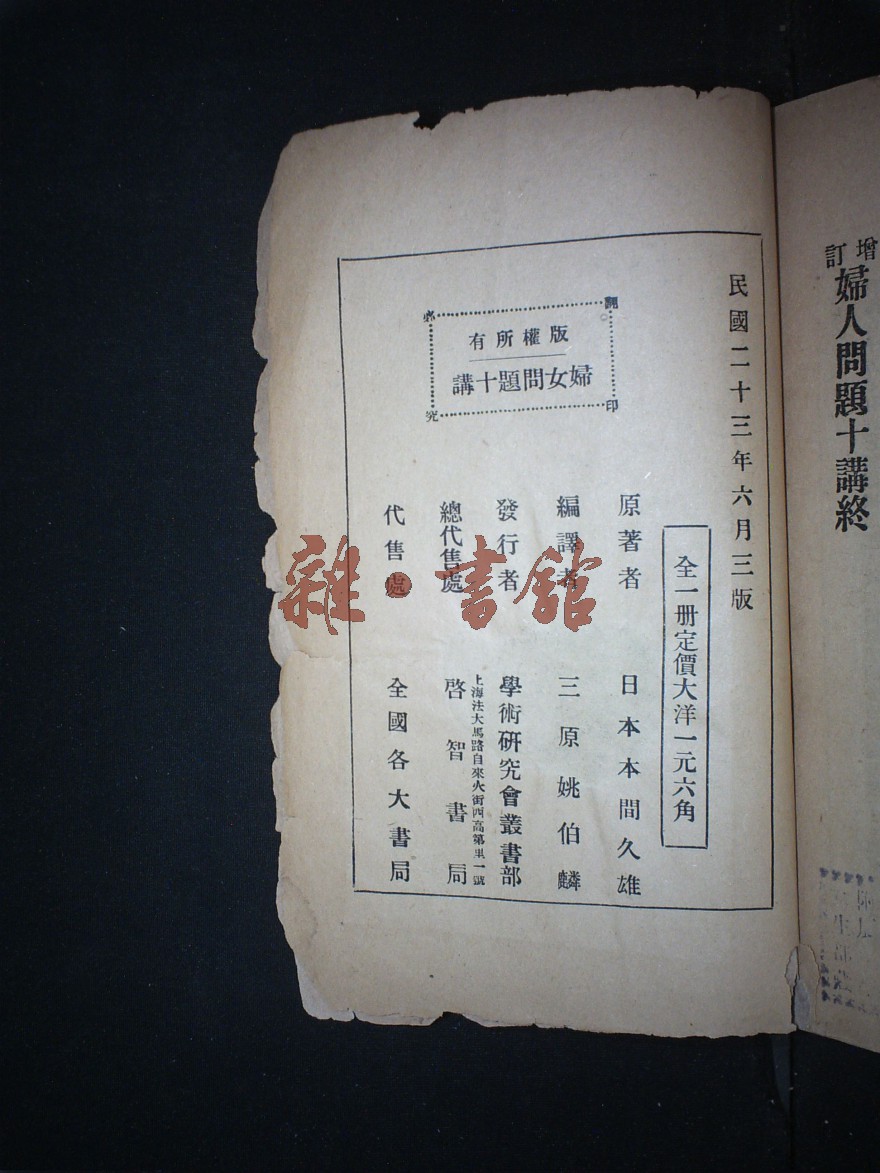 增訂
婦人問題十講終
民國二十三年六月三版
全一册定價大洋一元六角
翻印必究
版權所有
婦女問題十講
原著者 日本本間久雄
編譯者 三原姚伯麟
發行者 學術研究會叢書部
上海法大馬路自來火街西高第里一號
總代售處 啓智書局
代售處 全國各大書局
雜·書館